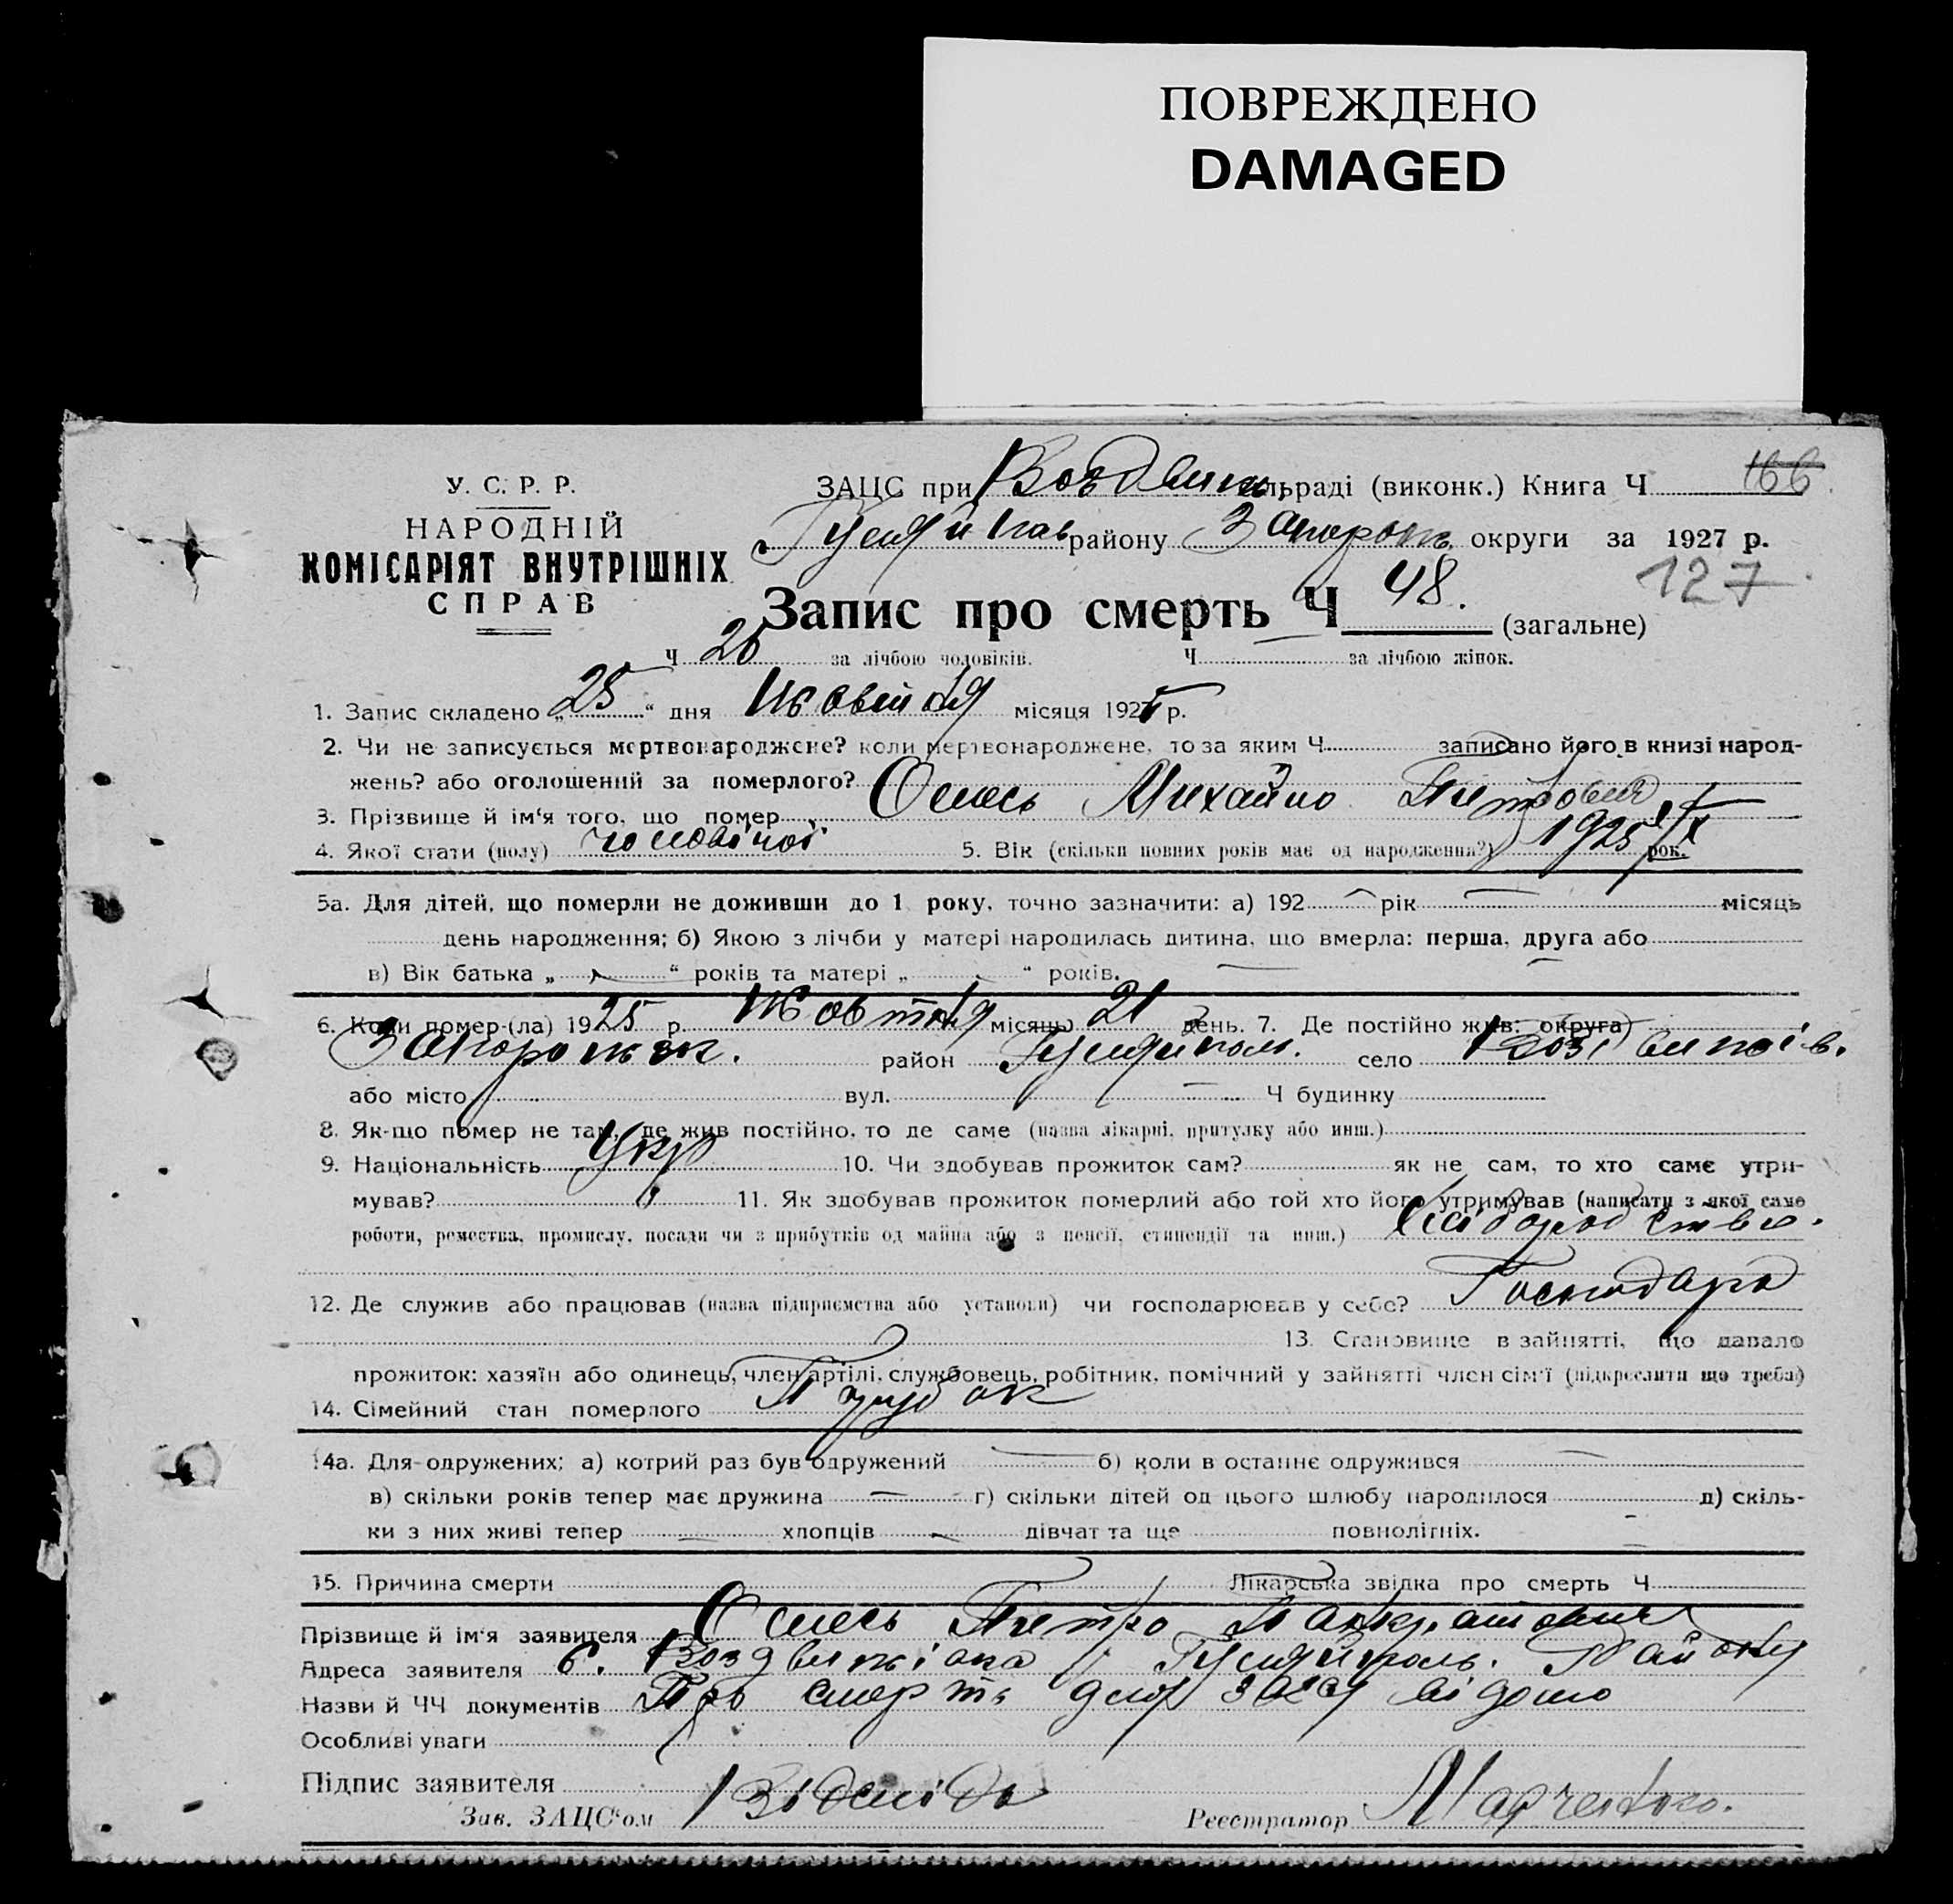 ПОВРЕЖДЕНО
DAMAGED
У. С. Р. Р.
НАРОДНІЙ
КОМІСАРІЯТ ВНУТРІШНІХ
СПРАВ
ЗАЦС при Воздвиж. сільраді (виконк.) Книга Ч 166
району Запорож. округи за 1927 р.
127
Запис про смерть Ч 48. (загальне)
Ч 26 за лічбою чоловіків. Ч — за лічбою жінок.
1. Запис складено „ 25 “ дня Жовтня місяця 192 р.
2. Чи не записується мертвонароджене? коли мертвонароджене, то за яким Ч записано його в книзі народ-
жень? або оголошений за померлого?
3. Прізвище й ім‘я того, що помер Омесь Михайло Петрович
4. Якої стати (полу) чоловічої 5. Вік (скільки повних років має од народження?) 1925 рок.
5а. Для дітей, що померли не доживши до 1 року, точно зазначити: а) 192 — рік — місяць
день народження; б) Якою з лічби у матері народилась дитина, що вмерла: перша, друга або
в) Вік батька „ “ років та матері „ “ років.
6. Коли помер-(ла) 1925 р. Жовтня місяць 21 день. 7. Де постійно жив: округа)
Запорожж. район Гуляйпол. село Воздвижків.
або місто вул. — Ч будинку
8. Як-що помер не там, де жив постійно, то де саме (назва лікарні, притулку або инш.)
9. Національність Укр 10. Чи здобував прожиток сам? як не сам, то хто саме утри-
мував? 11. Як здобував прожиток померлий або той хто його утримував (написати з якої саме
роботи, ремества, промислу, посади чи з прибутків од майна або з пенсії, стипендії та инш.)
12. Де служив або працював (назва підприємства або установи) чи господарював у себе? Господарь
13. Становище в зайнятті, що давало
прожиток: хазяїн або одинець, член артілі, службовець, робітник, помічний у зайнятті член сім‘ї (підкреслити що треба)
14. Сімейний стан померлого Парубок
14а. Для одружених: а) котрий раз був одружений — б) коли в останнє одружився —
в) скільки років тепер має дружина — г) скільки дітей од цього шлюбу народилося — д) скіль-
ки з них живі тепер — хлопців — дівчат та ще повнолітніх.
15. Причина смерти Лікарська звідка про смерть Ч
Прізвище й ім‘я заявителя Омесь Петро Панкратович
Адреса заявителя с. Воздвижівка Гуляйполь. Району
Назви й ЧЧ документів Про смерть для загсу відомо
Особливі уваги
Підпис заявителя
Зав. ЗАЦС‘ом Реєстратор